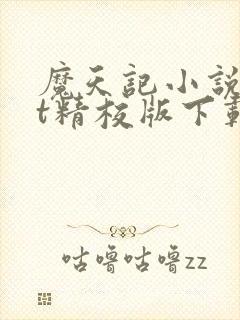 魔天記小說
t精校版下載
咕噜咕噜zz